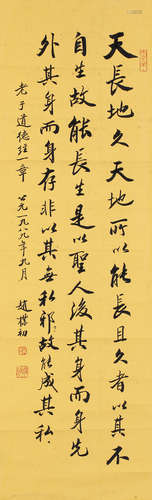 天長地久天地所以能長且久者以其不
自生故能長生是以聖人後其身而身先
外其身而身存非以其無私邪故能成其私
老子道德經一章 公元一九八九年九月
趙樸初